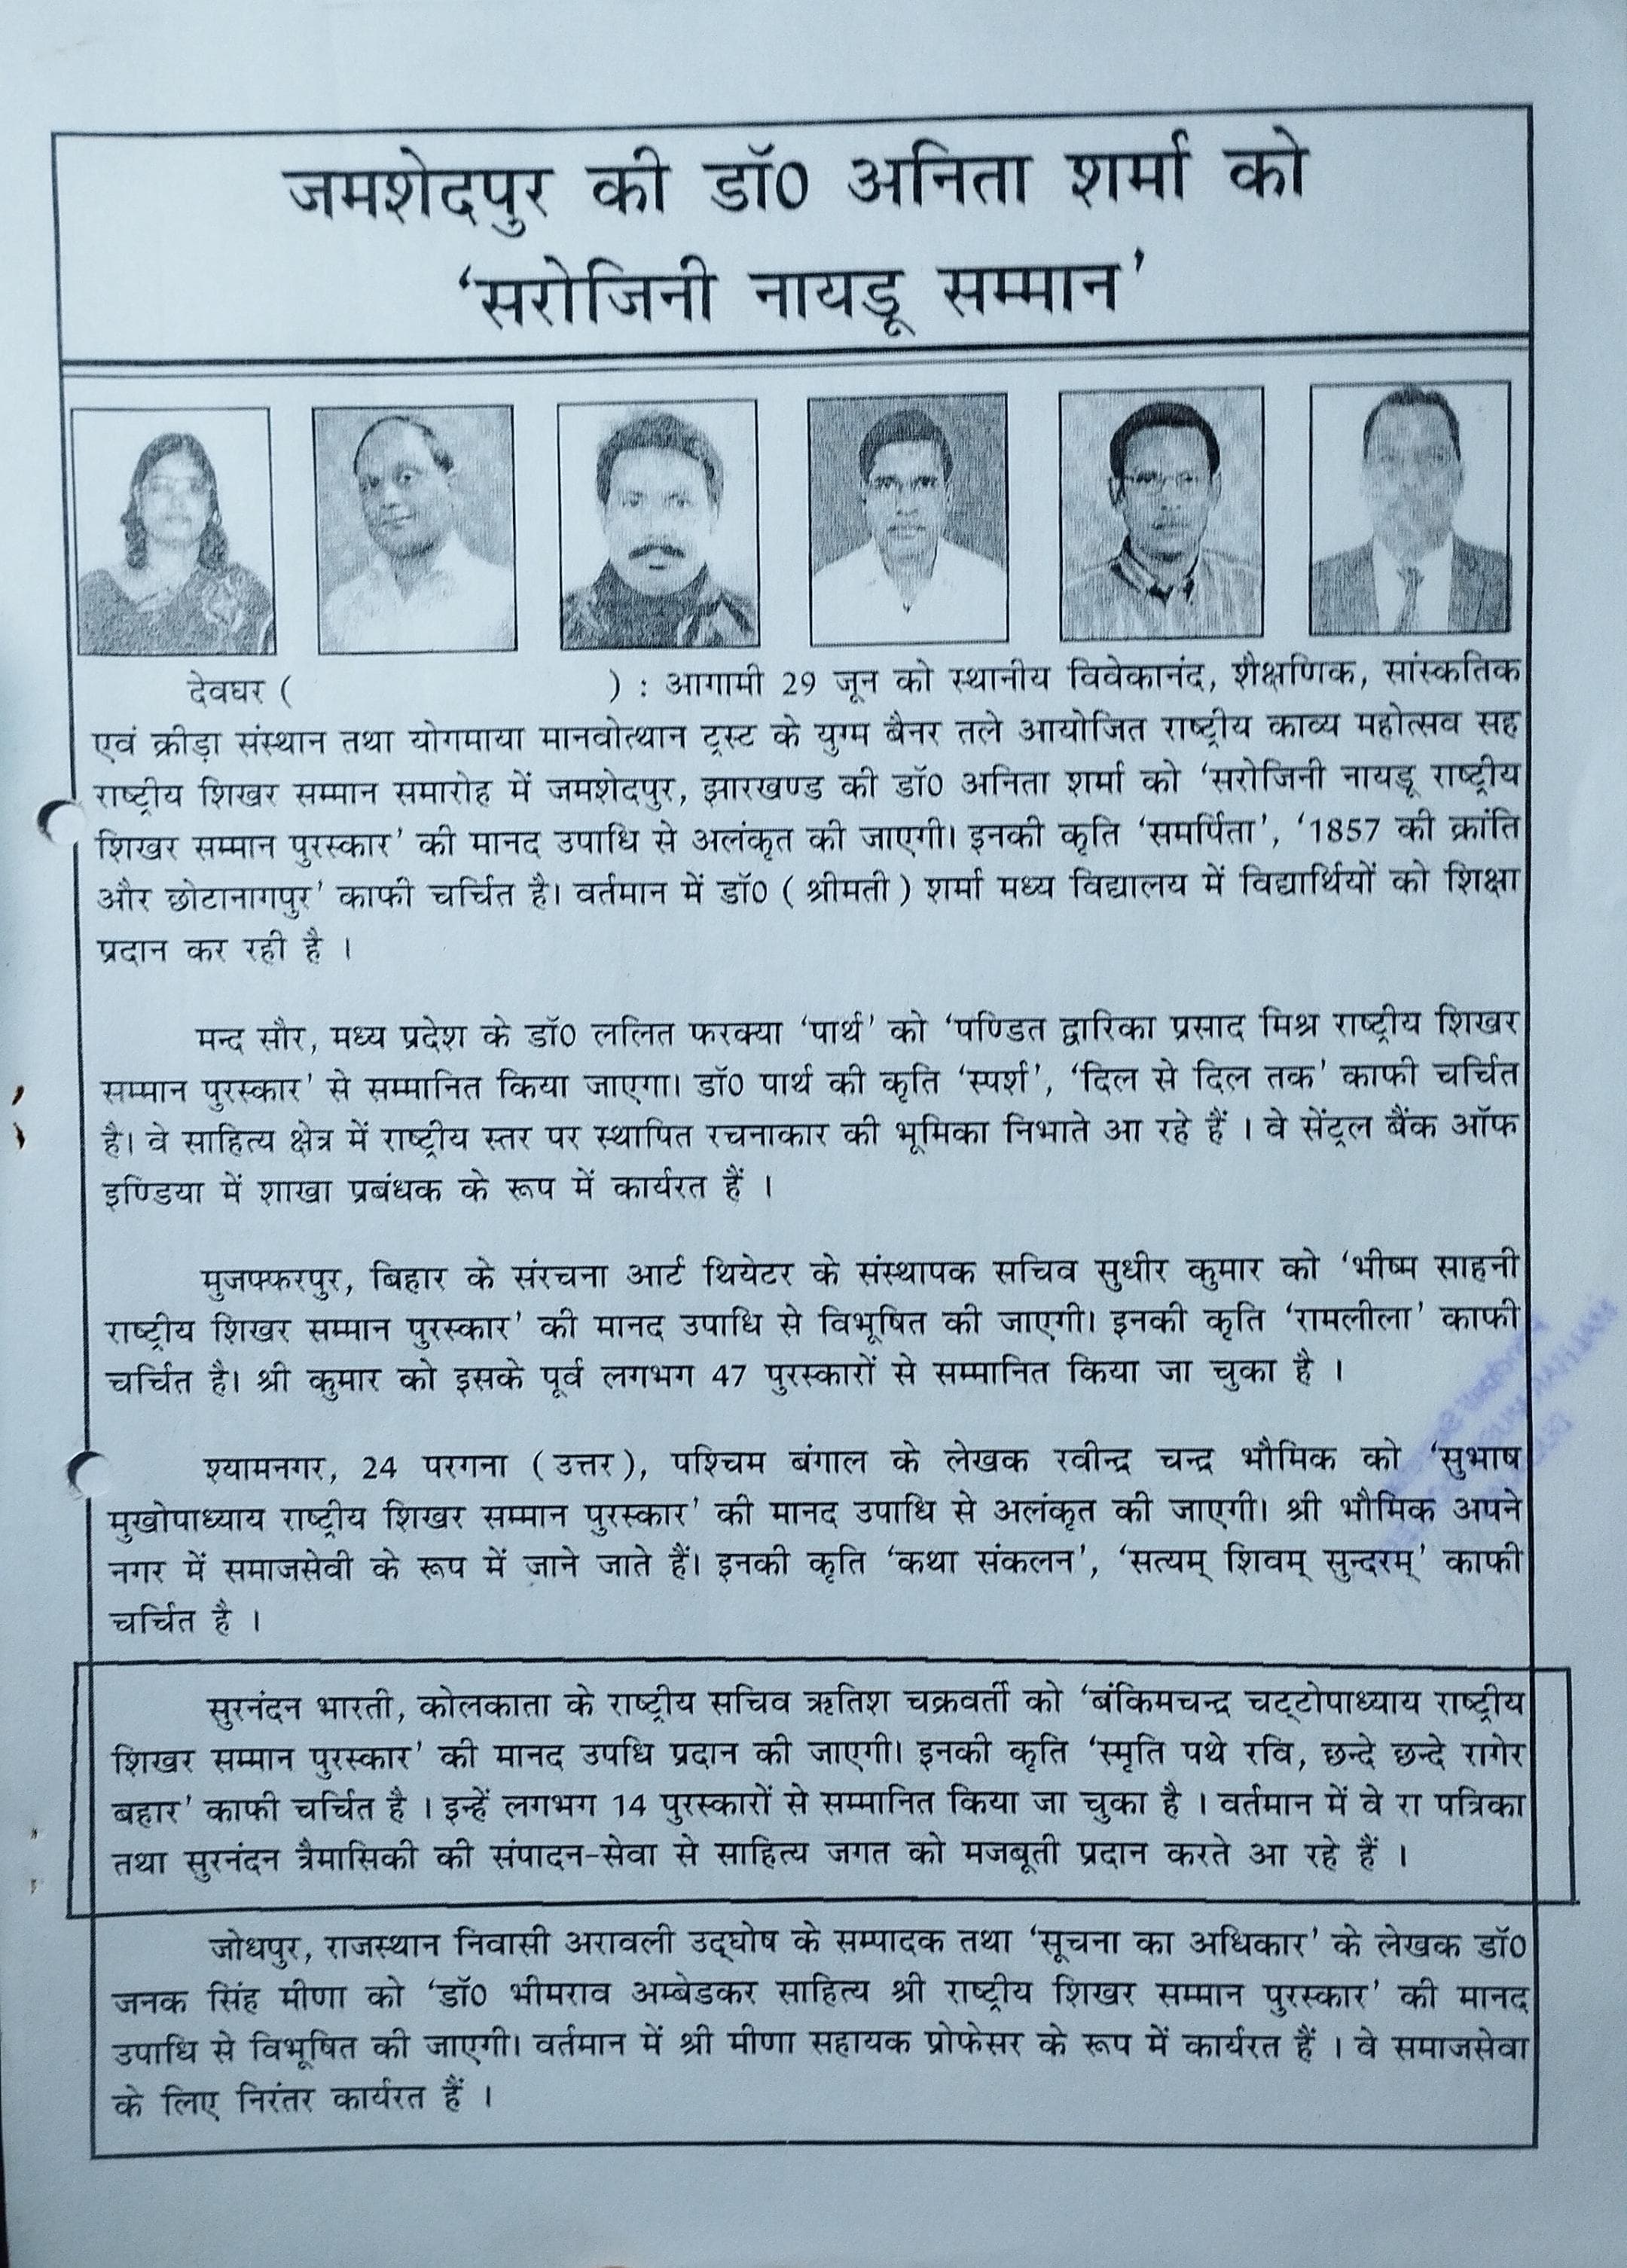 जमशेदपुर की डॉ0 अनिता शर्मा को
‘सरोजिनी नायडू सम्मान’
देवघर ( ) : आगामी 29 जून को स्थानीय विवेकानंद, शैक्षणिक, सांस्कतिक
एवं क्रीड़ा संस्थान तथा योगमाया मानवोत्थान ट्रस्ट के युग्म बैनर तले आयोजित राष्ट्रीय काव्य महोत्सव सह
राष्ट्रीय शिखर सम्मान समारोह में जमशेदपुर, झारखण्ड की डॉ0 अनिता शर्मा को ‘सरोजिनी नायडू राष्ट्रीय
शिखर सम्मान पुरस्कार’ की मानद उपाधि से अलंकृत की जाएगी। इनकी कृति ‘समर्पिता’, ‘1857 की क्रांति
और छोटानागपुर’ काफी चर्चित है। वर्तमान में डॉ0 ( श्रीमती ) शर्मा मध्य विद्यालय में विद्यार्थियों को शिक्षा
प्रदान कर रही है ।
मन्द सौर, मध्य प्रदेश के डॉ0 ललित फरक्या ‘पार्थ’ को ‘पण्डित द्वारिका प्रसाद मिश्र राष्ट्रीय शिखर
सम्मान पुरस्कार’ से सम्मानित किया जाएगा। डॉ0 पार्थ की कृति ‘स्पर्श’, ‘दिल से दिल तक’ काफी चर्चित
है। वे साहित्य क्षेत्र में राष्ट्रीय स्तर पर स्थापित रचनाकार की भूमिका निभाते आ रहे हैं । वे सेंट्रल बैंक ऑफ
इण्डिया में शाखा प्रबंधक के रूप में कार्यरत हैं ।
मुजफ्फरपुर, बिहार के संरचना आर्ट थियेटर के संस्थापक सचिव सुधीर कुमार को ‘भीष्म साहनी
राष्ट्रीय शिखर सम्मान पुरस्कार’ की मानद उपाधि से विभूषित की जाएगी। इनकी कृति ‘रामलीला’ काफी
चर्चित है। श्री कुमार को इसके पूर्व लगभग 47 पुरस्कारों से सम्मानित किया जा चुका है ।
श्यामनगर, 24 परगना ( उत्तर ), पश्चिम बंगाल के लेखक रवीन्द्र चन्द्र भौमिक को ‘सुभाष
मुखोपाध्याय राष्ट्रीय शिखर सम्मान पुरस्कार’ की मानद उपाधि से अलंकृत की जाएगी। श्री भौमिक अपने
नगर में समाजसेवी के रूप में जाने जाते हैं। इनकी कृति ‘कथा संकलन’, ‘सत्यम् शिवम् सुन्दरम्’ काफी
चर्चित है ।
सुरनंदन भारती, कोलकाता के राष्ट्रीय सचिव ऋतिश चक्रवर्ती को ‘बंकिमचन्द्र चट्टोपाध्याय राष्ट्रीय
शिखर सम्मान पुरस्कार’ की मानद उपधि प्रदान की जाएगी। इनकी कृति ‘स्मृति पथे रवि, छन्दे छन्दे रागेर
बहार’ काफी चर्चित है । इन्हें लगभग 14 पुरस्कारों से सम्मानित किया जा चुका है । वर्तमान में वे रा पत्रिका
तथा सुरनंदन त्रैमासिकी की संपादन-सेवा से साहित्य जगत को मजबूती प्रदान करते आ रहे हैं ।
जोधपुर, राजस्थान निवासी अरावली उद्घोष के सम्पादक तथा ‘सूचना का अधिकार’ के लेखक डॉ0
जनक सिंह मीणा को ‘डॉ0 भीमराव अम्बेडकर साहित्य श्री राष्ट्रीय शिखर सम्मान पुरस्कार’ की मानद
उपाधि से विभूषित की जाएगी। वर्तमान में श्री मीणा सहायक प्रोफेसर के रूप में कार्यरत हैं । वे समाजसेवा
के लिए निरंतर कार्यरत हैं ।